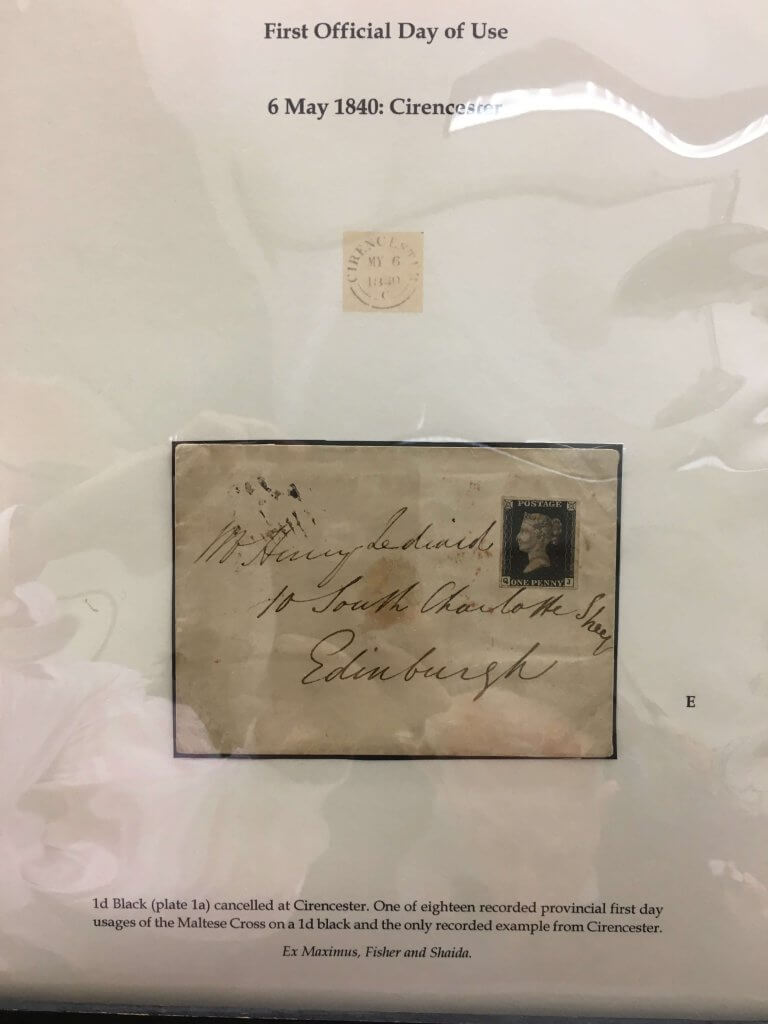 First Official Day of Use
6 May 1840: Cirencester
CIRENCESTER
MY 6
1840
C
POSTAGE
ONE PENNY
J
Mr Henry Lediard
10 South Charlotte
Edinburgh
E
1d Black (plate 1a) cancelled at Cirencester. One of eighteen recorded provincial first day
usages of the Maltese Cross on a 1d black and the only recorded example from Cirencester.
Ex Maximus, Fisher and Shaida.